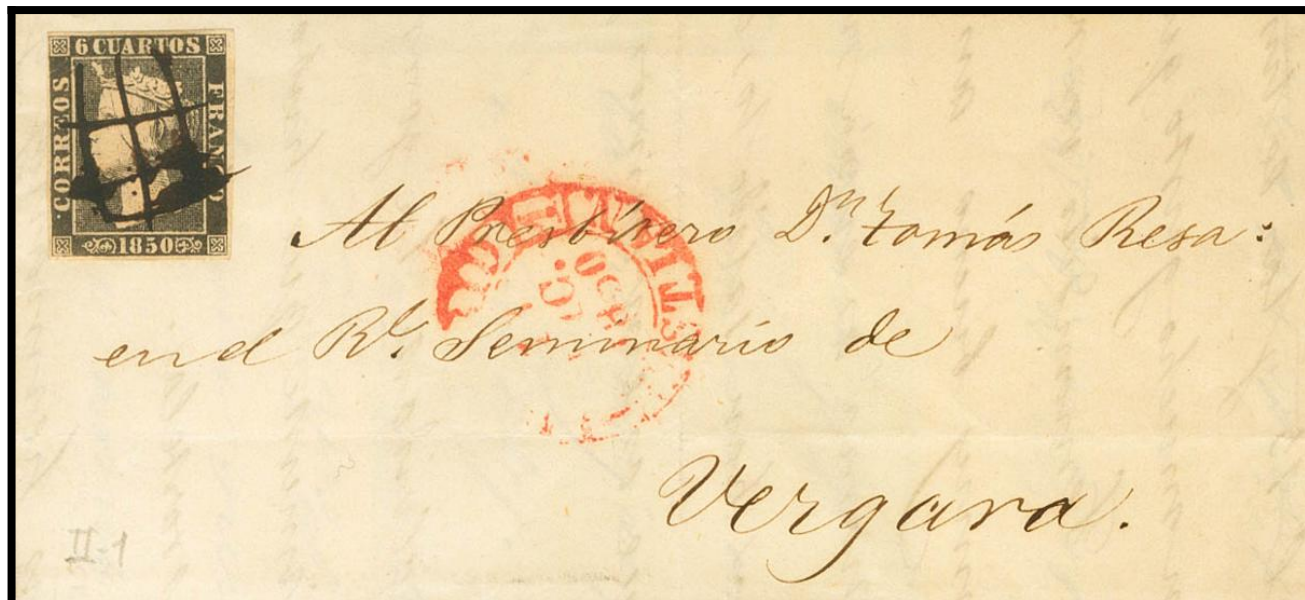 6 CUARTOS
CORREOS
FRANCO
1850
Al Presbítero Dn. Tomás Resa:
en el Rl. Seminario de
Vergara.
II-1